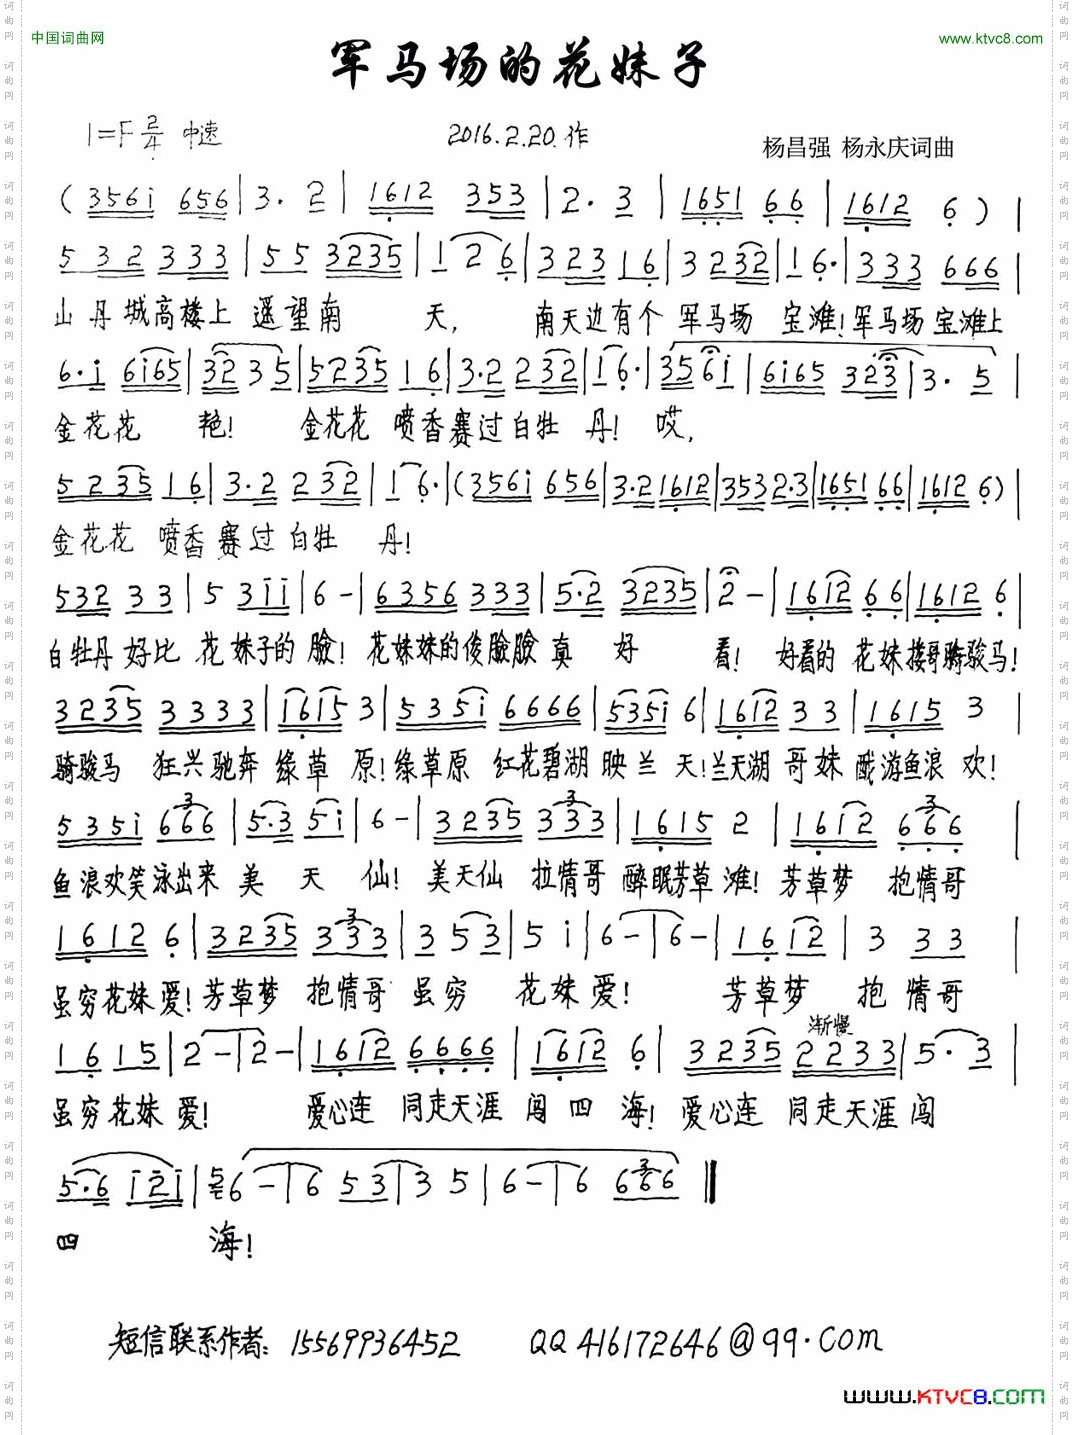 中国词曲网
www.ktvc8.com
军马场的花妹子
1=F 2/4 中速
2016.2.20.作
杨昌强 杨永庆词曲
(3561 656|3. 2|1612 353|2. 3|1651 66|1612 6)|
532 333|55 3235|1 2 6|323 16|3 232|1 6.|333 666|
山丹城高楼上 遥望南 天, 南天边有个 军马场 宝滩!军马场宝滩上
6.i 6i65|32 35|5235 16|3.2 232|1 6.|356i|6i65 323|3. 5|
金花花 艳! 金花花 喷香赛过白牡 丹! 哎,
5235 16|3.2 232|1 6.|(356i 656|3.2 1612|353 2.3|1651 66|1612 6)|
金花花 喷香赛过白牡 丹!
532 33|5 3ii|6-|6356 333|5.2 3235|2-|1612 66|1612 6|
白牡丹好比 花妹子的脸! 花妹妹的俊脸脸真 好 看! 好看的 花妹搂哥骑骏马!
3235 3333|1615 3|535i 6666|535i 6|1612 33|1615 3|
骑骏马 狂兴驰奔 绿草 原!绿草原 红花碧湖映兰 天!兰天湖 哥妹 戏游鱼浪 欢!
535i 666|5.3 5i|6-|3235 333|1615 2|1612 666|
鱼浪欢笑泳出来 美 天 仙! 美天仙 拉情哥 醉眠芳草 滩! 芳草梦 抱情哥
1612 6|3235 333|3 53|5 i|6-|6-|1612|3 33|
虽穷花妹爱!芳草梦 抱情哥 虽穷 花妹爱! 芳草梦 抱 情哥
渐慢
16 15|2-|2-|1612 6666|1612 6|3235 2233|5. 3|
虽穷花妹爱! 爱心连 同走天涯 闯四 海! 爱心连 同走天涯 闯
5.6 i2i|56-|6 53|3 5|6-|6 666‖
四 海!
短信联系作者: 15569936452 QQ 416172646@qq.com
www.KTVC8.com